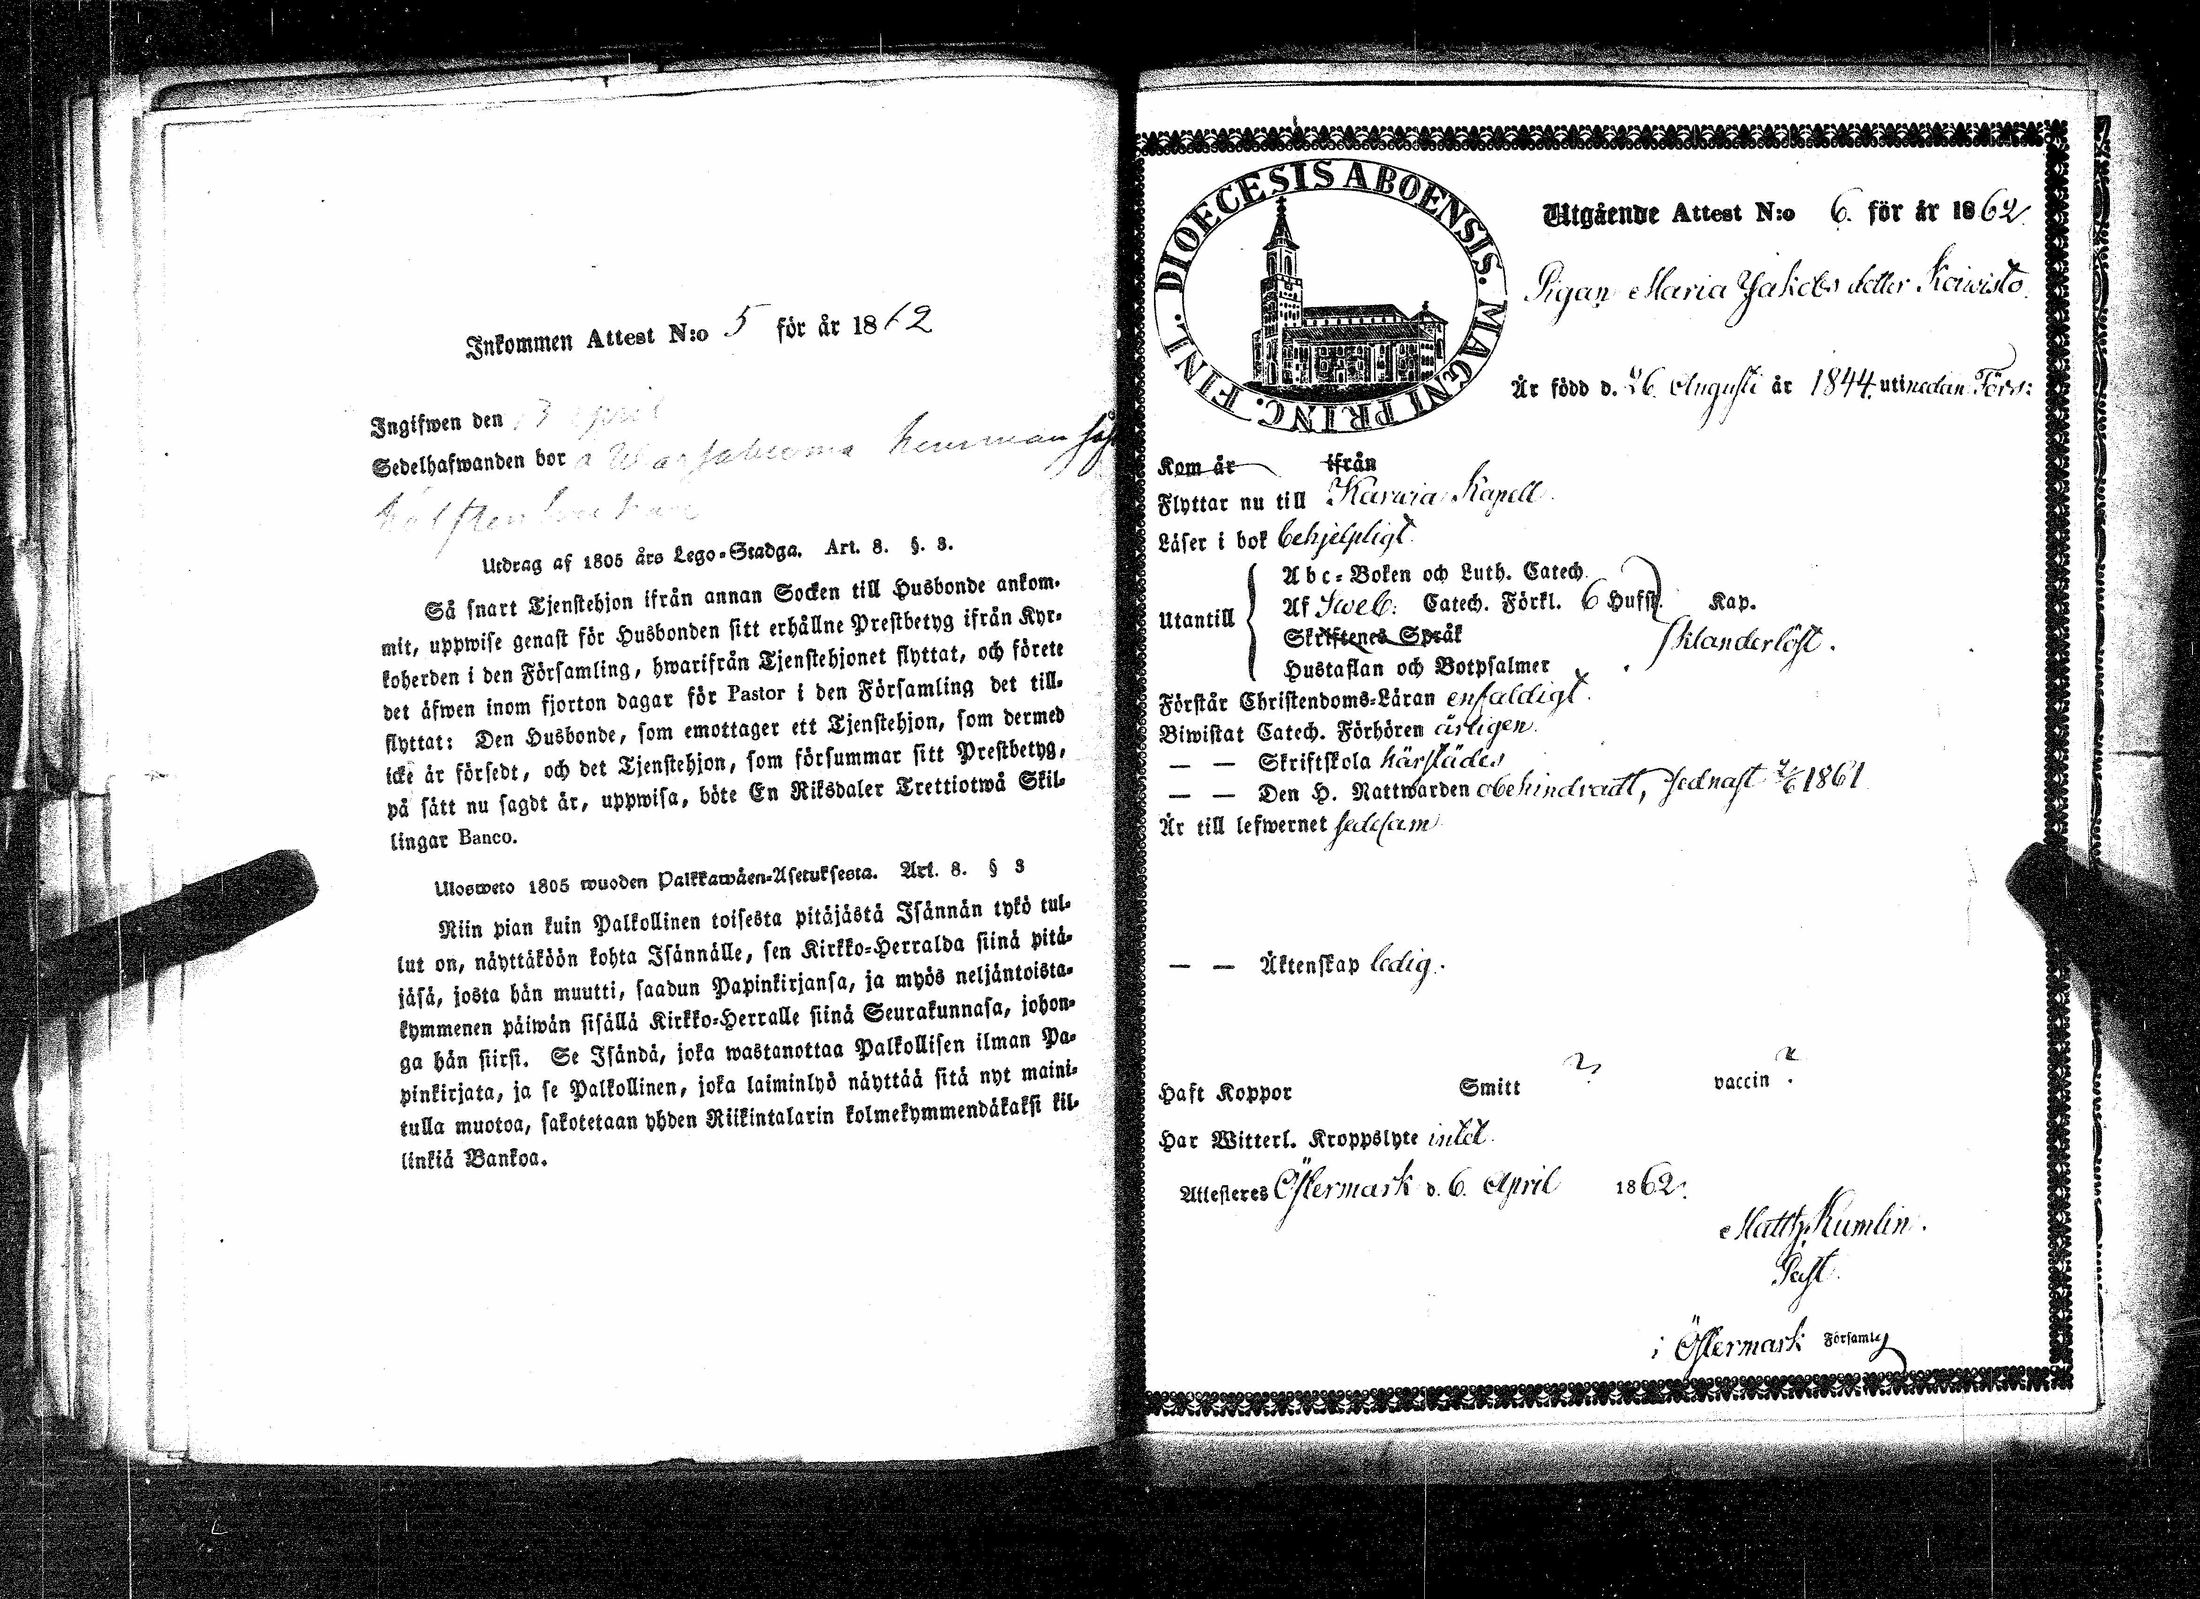 Inkommen Attest N:o 5 för år 1862
Ingifwen den 13 april
Sedelhafwanden bor å
Utdrag af 1805 års Lego-Stadga. Art. 8. §. 3.
Så snart Tjenstehjon ifrån annan Socken till Husbonde ankom-
mit, uppwise genast för Husbonden sitt erhållne Prestbetyg ifrån Kyr-
koherden i den Församling, hwarifrån Tjenstehjonet flyttat, och förete
det äfwen inom fjorton dagar för Pastor i den Församling det till-
flyttat: Den Husbonde, som emottager ett Tjenstehjon, som dermed
icke är försedt, och det Tjenstehjon, som försummar sitt Prestbetyg,
på sätt nu sagdt är, uppwisa, böte En Riksdaler Trettiotwå Skil-
lingar Banco.
Ulosweto 1805 wuoden Palkkawäen-Asetuksesta. Art. 8. § 3
Niin pian kuin Palkollinen toisesta pitäjästä Isännän tykö tul-
lut on, näyttäköön kohta Isännälle, sen Kirkko-Herralda siinä pitä-
jäsä, josta hän muutti, saadun Papinkirjansa, ja myös neljäntoista-
kymmenen päiwän sisällä Kirkko-Herralle siinä Seurakunnasa, johon-
ga hän siirsi. Se Isändä, joka wastanottaa Palkollisen ilman Pa-
pinkirjata, ja se Palkollinen, joka laiminlyö näyttää sitä nyt maini-
tulla muotoa, sakotetaan yhden Riikintalarin kolmekymmendäkaksi kil-
linkiä Bankoa.
DIOECESIS ABOENSIS. MAGNI PRINC. FINL.
Utgående Attest N:o 6. för år 1862
Pigan Maria Jakobs dotter Koiwisto.
Är född d. 26 Augusti år 1844. uti nedan Förs:
Kom år ifrån
Flyttar nu till Karwia Kapell.
Läser i bok behjelpligt.
Utantill
Abc-Boken och Luth. Catech.
Af Sweb: Catech. Förkl. 6 Hufst. Kap.
Skriftenes Språk
sklanderlöst.
Hustaflan och Botpsalmer
Förstår Christendoms-Läran enfaldigt.
Biwistat Catech. Förhören årligen.
— — Skriftskola härstädes
— — Den H. Nattwarden obehindradt, sednast 1861
Är till lefwernet sedesam
— — Äktenskap ledig.
Haft Koppor Smitt ? vaccin ?
Har Witterl. Kroppslyte intet.
Attesteres Östermark d. 6. April 1862.
Matth. Kumlin.
Past.
i Östermark Församlg